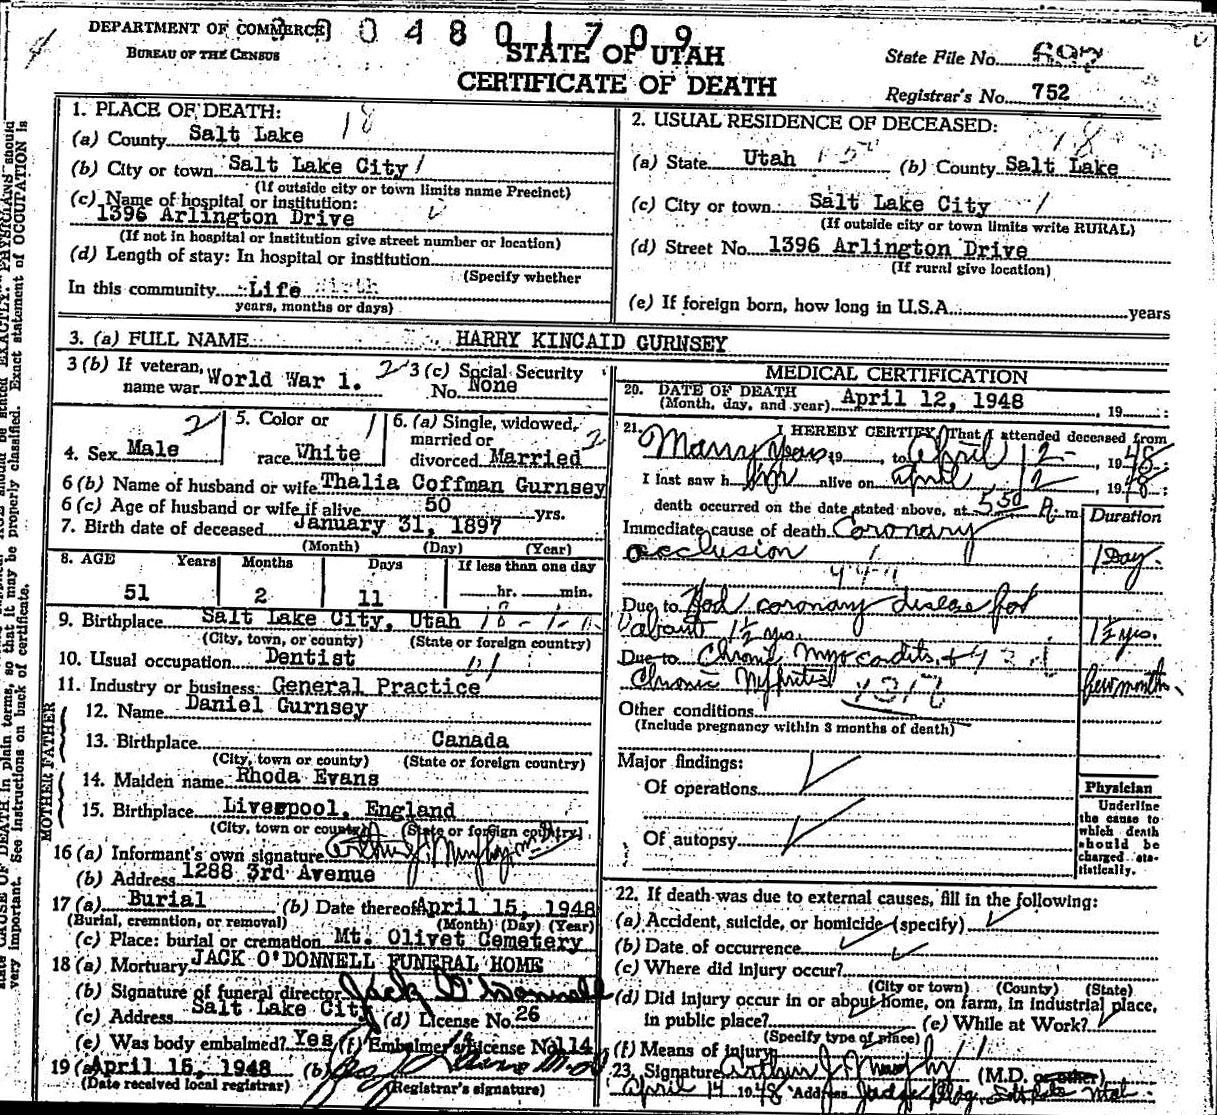 DEPARTMENT OF COMMERCE
BUREAU OF THE CENSUS
04801709
STATE OF UTAH
CERTIFICATE OF DEATH
State File No. 697
Registrar's No. 752
1. PLACE OF DEATH: 18
(a) County Salt Lake
(b) City or town Salt Lake City 1
(If outside city or town limits name Precinct)
(c) Name of hospital or institution:
1396 Arlington Drive
(If not in hospital or institution give street number or location)
(d) Length of stay: In hospital or institution
(Specify whether
In this community Life
years, months or days)
2. USUAL RESIDENCE OF DECEASED: 18
(a) State Utah (b) County Salt Lake
(c) City or town Salt Lake City 1
(If outside city or town limits write RURAL)
(d) Street No. 1396 Arlington Drive
(If rural give location)
(e) If foreign born, how long in U.S.A. years
3. (a) FULL NAME HARRY KINCAID GURNSEY
3 (b) If veteran, name war World War 1. 2
3 (c) Social Security No. None
4. Sex Male 2
5. Color or race White 1
6. (a) Single, widowed, married or divorced Married 2
6 (b) Name of husband or wife Thalia Coffman Gurnsey
6 (c) Age of husband or wife if alive 50 yrs.
7. Birth date of deceased January 31, 1897
(Month) (Day) (Year)
8. AGE Years Months Days If less than one day
51 2 11 hr. min.
9. Birthplace Salt Lake City, Utah
(City, town, or county) (State or foreign country)
10. Usual occupation Dentist
11. Industry or business General Practice
FATHER
12. Name Daniel Gurnsey
13. Birthplace Canada
(City, town or county) (State or foreign country)
MOTHER
14. Maiden name Rhoda Evans
15. Birthplace Liverpool, England
(City, town or county) (State or foreign country)
16 (a) Informant's own signature Arthur J. Murphy M.D.
(b) Address 1288 3rd Avenue
17 (a) Burial (b) Date thereof April 15, 1948
(Burial, cremation, or removal) (Month) (Day) (Year)
(c) Place: burial or cremation Mt. Olivet Cemetery
18 (a) Mortuary JACK O'DONNELL FUNERAL HOME
(b) Signature of funeral director Jack O'Donnell
(c) Address Salt Lake City (d) License No. 26
(e) Was body embalmed? Yes (f) Embalmer's License No. 114
19 (a) April 15, 1948 (b)
(Date received local registrar) (Registrar's signature)
MEDICAL CERTIFICATION
20. DATE OF DEATH
(Month, day, and year) April 12, 1948, 19
21. I HEREBY CERTIFY, That I attended deceased from
Many Years, 19, to April 12 - 1948
I last saw him alive on April 12, 1948;
death occurred on the date stated above, at 5:50 P. m.
Duration
Immediate cause of death Coronary
occlusion 1 Day.
Due to Had coronary disease for
about 1½ yrs. 1½ yrs.
Due to Chronic Myocarditis +
Chronic Nephritis few months
Other conditions
(Include pregnancy within 3 months of death)
Major findings:
Of operations
Of autopsy
Physician
Underline the cause to which death should be charged statistically.
22. If death was due to external causes, fill in the following:
(a) Accident, suicide, or homicide (specify)
(b) Date of occurrence
(c) Where did injury occur?
(City or town) (County) (State)
(d) Did injury occur in or about home, on farm, in industrial place,
in public place? (e) While at Work?
(Specify type of place)
(f) Means of injury
23. Signature Arthur J. Murphy (M.D. or other)
April 14 1948 Address Judge Bldg. Salt Lake
very important. See instructions on back of certificate.
state CAUSE OF DEATH in plain terms, so that it may be properly classified. Exact statement of OCCUPATION is